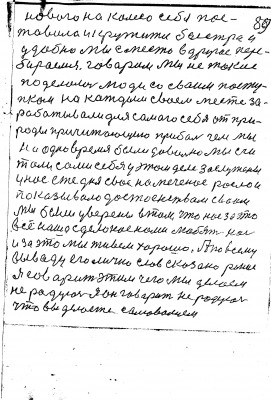 нового на колесо себя пос-
тавила и крутити быстро и
удобно мы с место в другое пере-
бираемся, говорим мы не такие
поделали люди со своим посту-
пком на каждом своем месте за-
рабатывали для самого себя от при-
роды причитающую прибыл чем мы
на одно время были довольно мы счи
тали сами себя у этом деле заслужены
у нас ежедня свое намеченое росло и
показывало достоенствам своим
мы были уверены в том что нас за это
всё нашо сделаное нами любят нас
и за это мы живем хорошо, А по всему
выводу его лично слов сказано раньше
Я говорит этим чего мы делаем
не радуюсь Я он говорит не радуюсь
что вы делаете самоволием